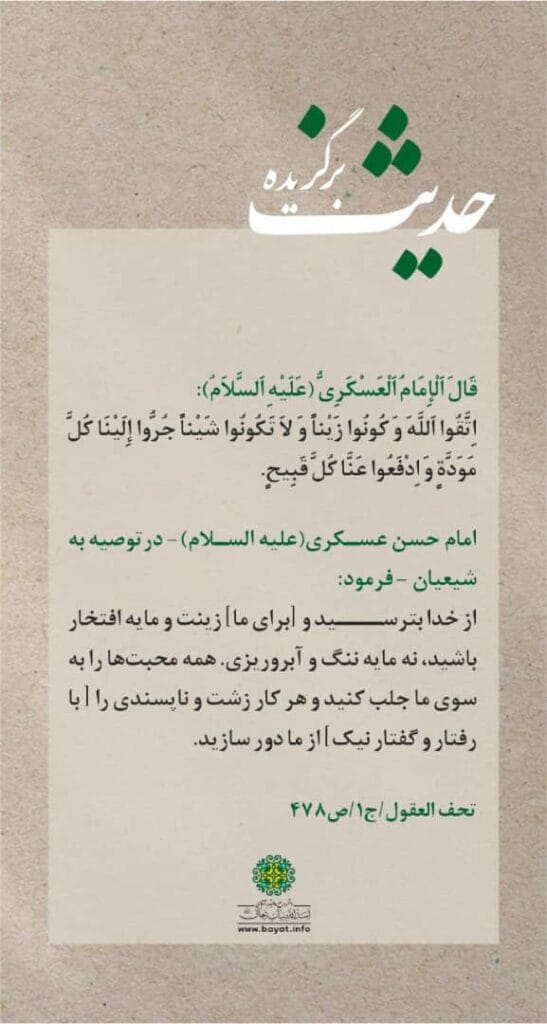 حدیث برگزیده
قَالَ اَلْإِمَامُ اَلْعَسْكَرِيُّ (عَلَيْهِ اَلسَّلاَمُ):
اِتَّقُوا اَللَّهَ وَ كُونُوا زَيْناً وَ لاَ تَكُونُوا شَيْناً جُرُّوا إِلَيْنَا كُلَّ
مَوَدَّةٍ وَ اِدْفَعُوا عَنَّا كُلَّ قَبِيحٍ.
امام حسن عسـکری(علیه السـلام) – در توصیه به
شیعیان – فرمود:
از خدا بترسـید و [برای ما] زینت و مایه افتخار
باشید، نه مایه ننگ و آبروریزی. همه محبت‌ها را به
سوی ما جلب کنید و هر کار زشت و ناپسندی را [ با
رفتار و گفتار نیک] از ما دور سازید.
تحف العقول/ج۱/ص۴۷۸
www.bayat.info